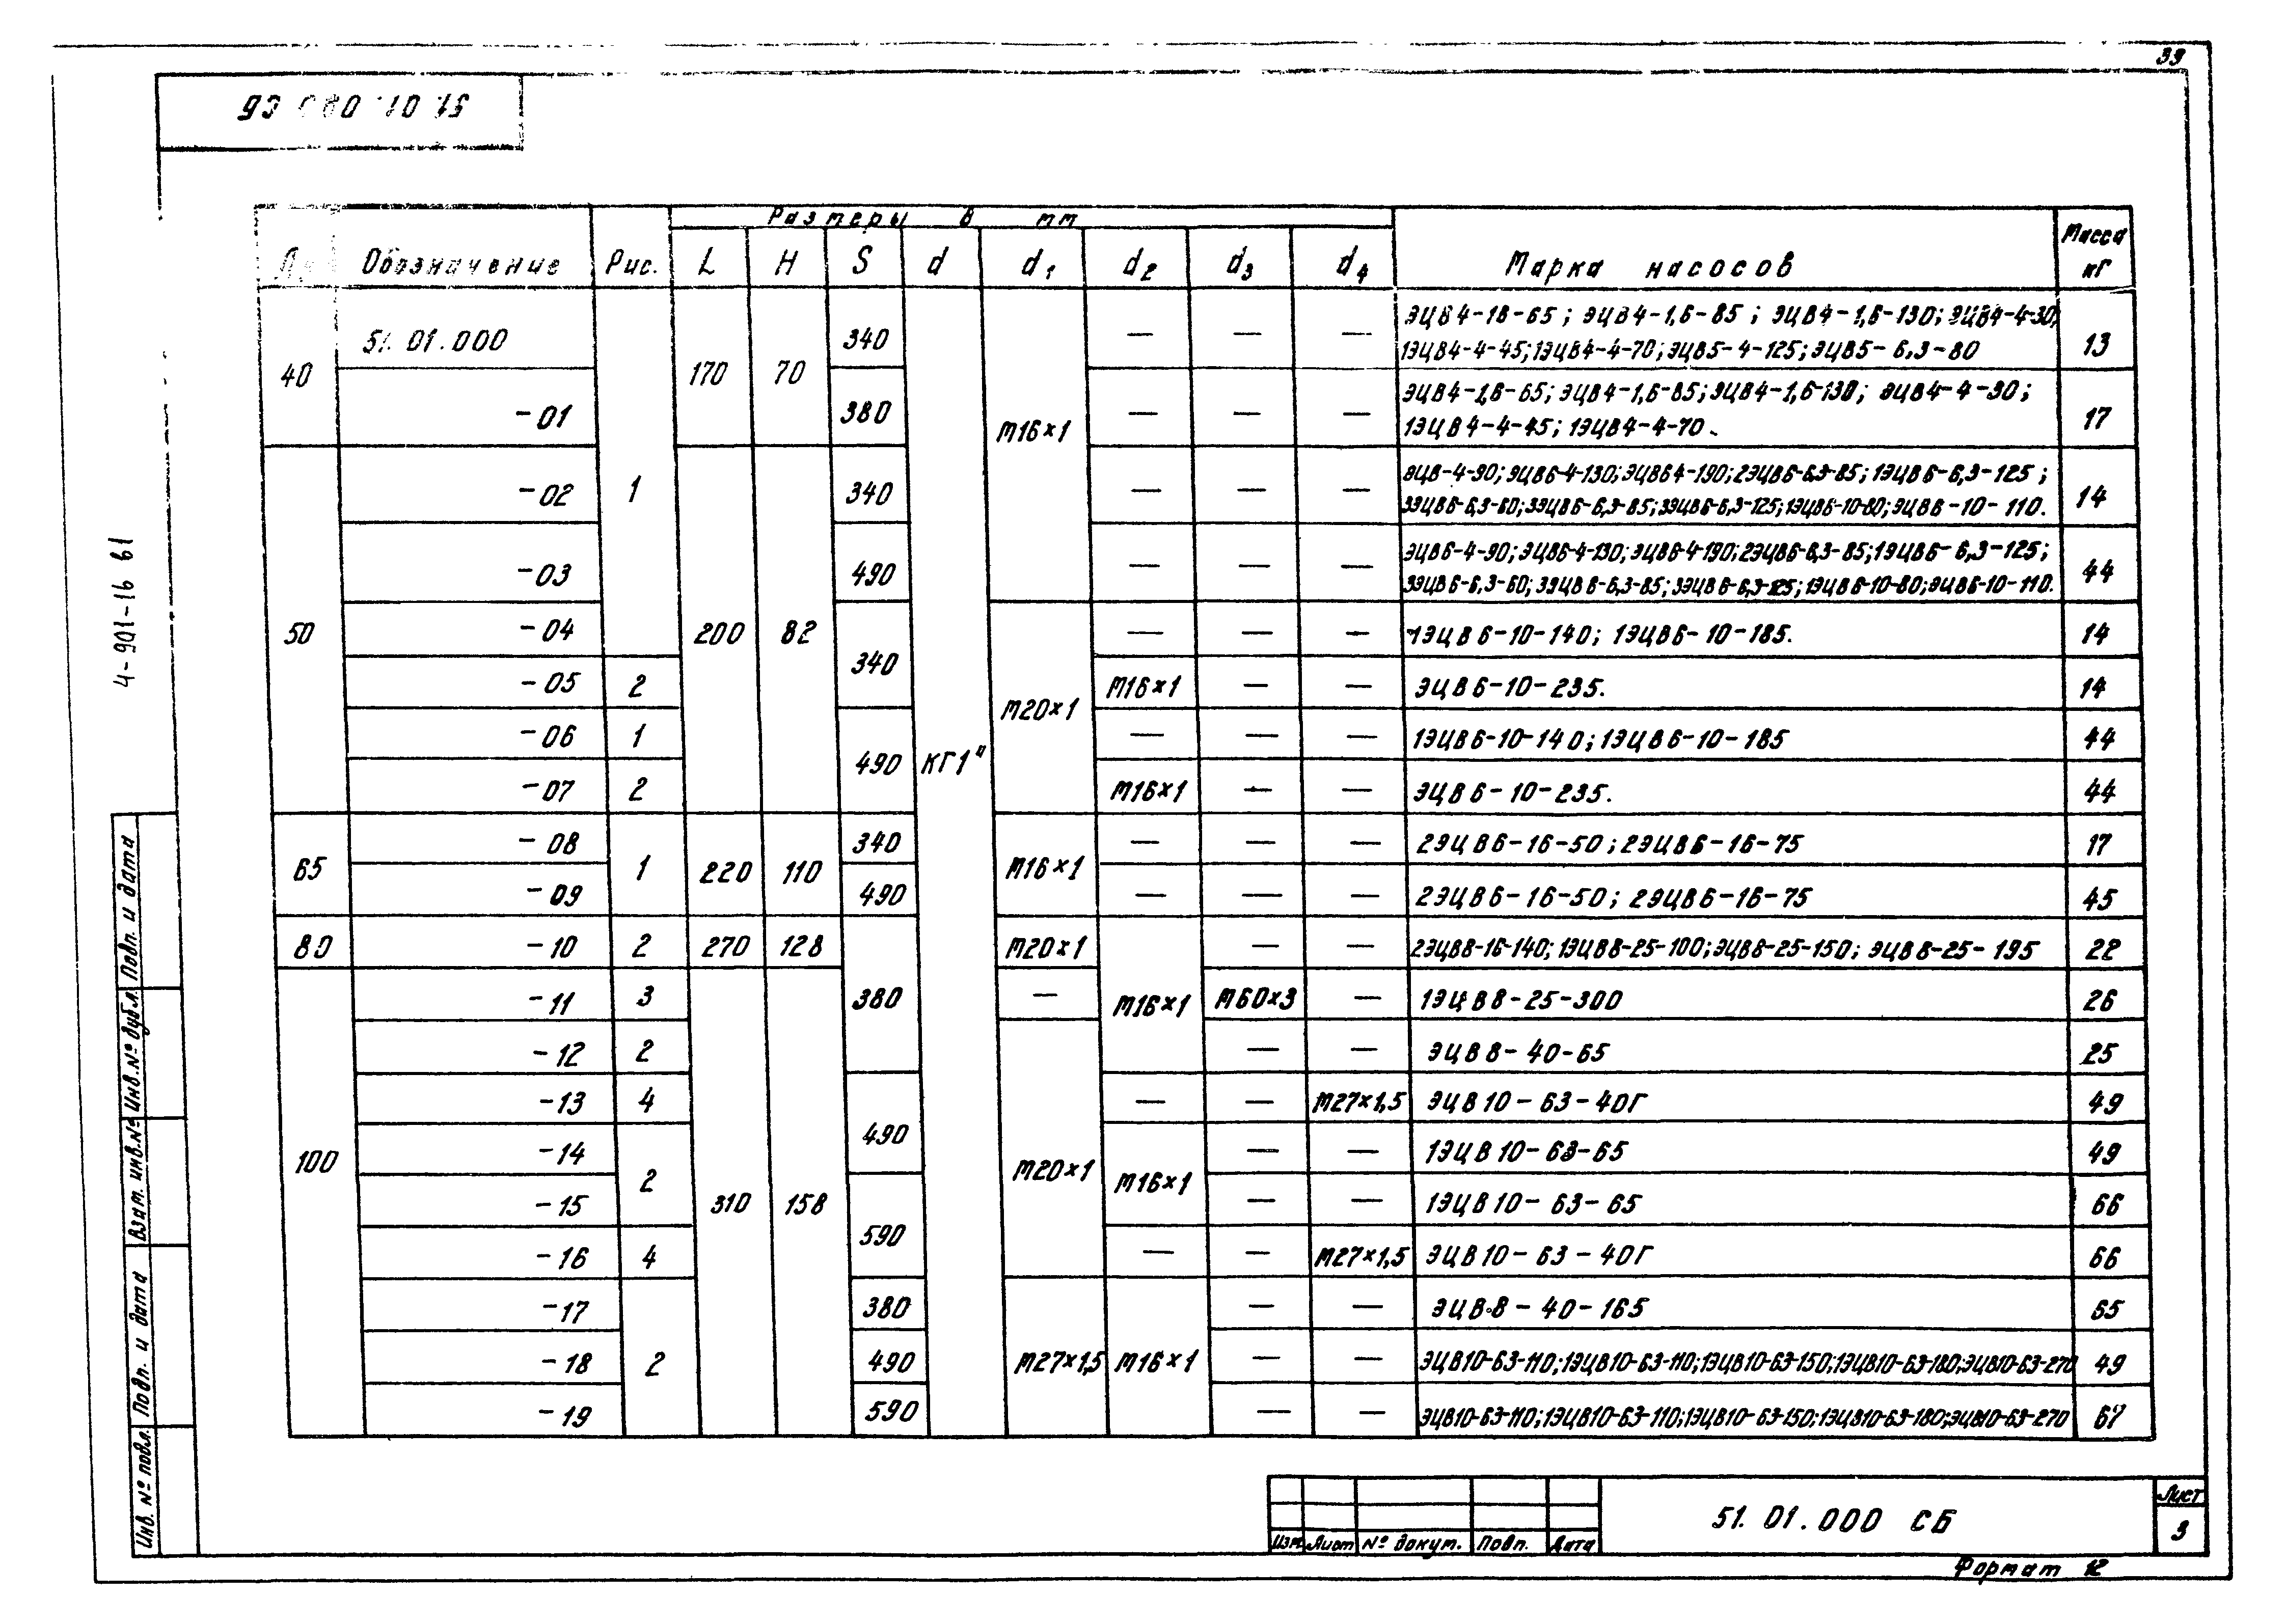 39
51.01.000 СБ
Размеры в мм
Обозначение Рис. L H S d d1 d2 d3 d4 Марка насосов Масса кг
40 51.01.000 1 170 70 340 КГ1" М16×1 — — — ЭЦВ4-1,6-65; ЭЦВ4-1,6-85; ЭЦВ4-1,6-130; ЭЦВ4-4-30;
1ЭЦВ4-4-45; 1ЭЦВ4-4-70; ЭЦВ5-4-125; ЭЦВ5-6,3-80 13
-01 380 — — — ЭЦВ4-1,6-65; ЭЦВ4-1,6-85; ЭЦВ4-1,6-130; ЭЦВ4-4-30;
1ЭЦВ4-4-45; 1ЭЦВ4-4-70. 17
50 -02 200 82 340 — — — ЭЦВ-4-90; ЭЦВ6-4-130; ЭЦВ64-190; 2ЭЦВ6-6,3-85; 1ЭЦВ6-6,3-125;
3ЭЦВ6-6,3-60; 3ЭЦВ6-6,3-85; 3ЭЦВ6-6,3-125; 1ЭЦВ6-10-80; ЭЦВ6-10-110. 14
-03 490 — — — ЭЦВ6-4-90; ЭЦВ6-4-130; ЭЦВ6-4-190; 2ЭЦВ6-6,3-85; 1ЭЦВ6-6,3-125;
3ЭЦВ6-6,3-60; 3ЭЦВ6-6,3-85; 3ЭЦВ6-6,3-125; 1ЭЦВ6-10-80; ЭЦВ6-10-110. 44
-04 340 М20×1 — — — 1ЭЦВ6-10-140; 1ЭЦВ6-10-185. 14
-05 2 М16×1 — — ЭЦВ6-10-235. 14
-06 1 490 — — — 1ЭЦВ6-10-140; 1ЭЦВ6-10-185 44
-07 2 М16×1 — — ЭЦВ6-10-235. 44
65 -08 1 220 110 340 М16×1 — — — 2ЭЦВ6-16-50; 2ЭЦВ6-16-75 17
-09 490 — — — 2ЭЦВ6-16-50; 2ЭЦВ6-16-75 45
80 -10 2 270 128 380 М20×1 М16×1 — — 2ЭЦВ8-16-140; 1ЭЦВ8-25-100; ЭЦВ8-25-150; ЭЦВ8-25-195 22
100 -11 3 310 158 — М60×3 — 1ЭЦВ8-25-300 26
-12 2 М20×1 — — ЭЦВ8-40-65 25
-13 4 490 — — М27×1,5 ЭЦВ10-63-40Г 49
-14 2 М16×1 — — 1ЭЦВ10-63-65 49
-15 590 — — 1ЭЦВ10-63-65 66
-16 4 — — М27×1,5 ЭЦВ10-63-40Г 66
-17 2 380 М27×1,5 М16×1 — — ЭЦВ8-40-165 65
-18 490 — — ЭЦВ10-63-110; 1ЭЦВ10-63-110; 1ЭЦВ10-63-150; 1ЭЦВ10-63-180; ЭЦВ10-63-270 49
-19 590 — — ЭЦВ10-63-110; 1ЭЦВ10-63-110; 1ЭЦВ10-63-150; 1ЭЦВ10-63-180; ЭЦВ10-63-270 67
4-901-16 в1
Подп. и дата
Инв. № дубл.
Взам. инв. №
Подп. и дата
Инв. № подл.
Изм Лист № докум. Подп. Дата
51.01.000 СБ
Лист
3
Формат 12